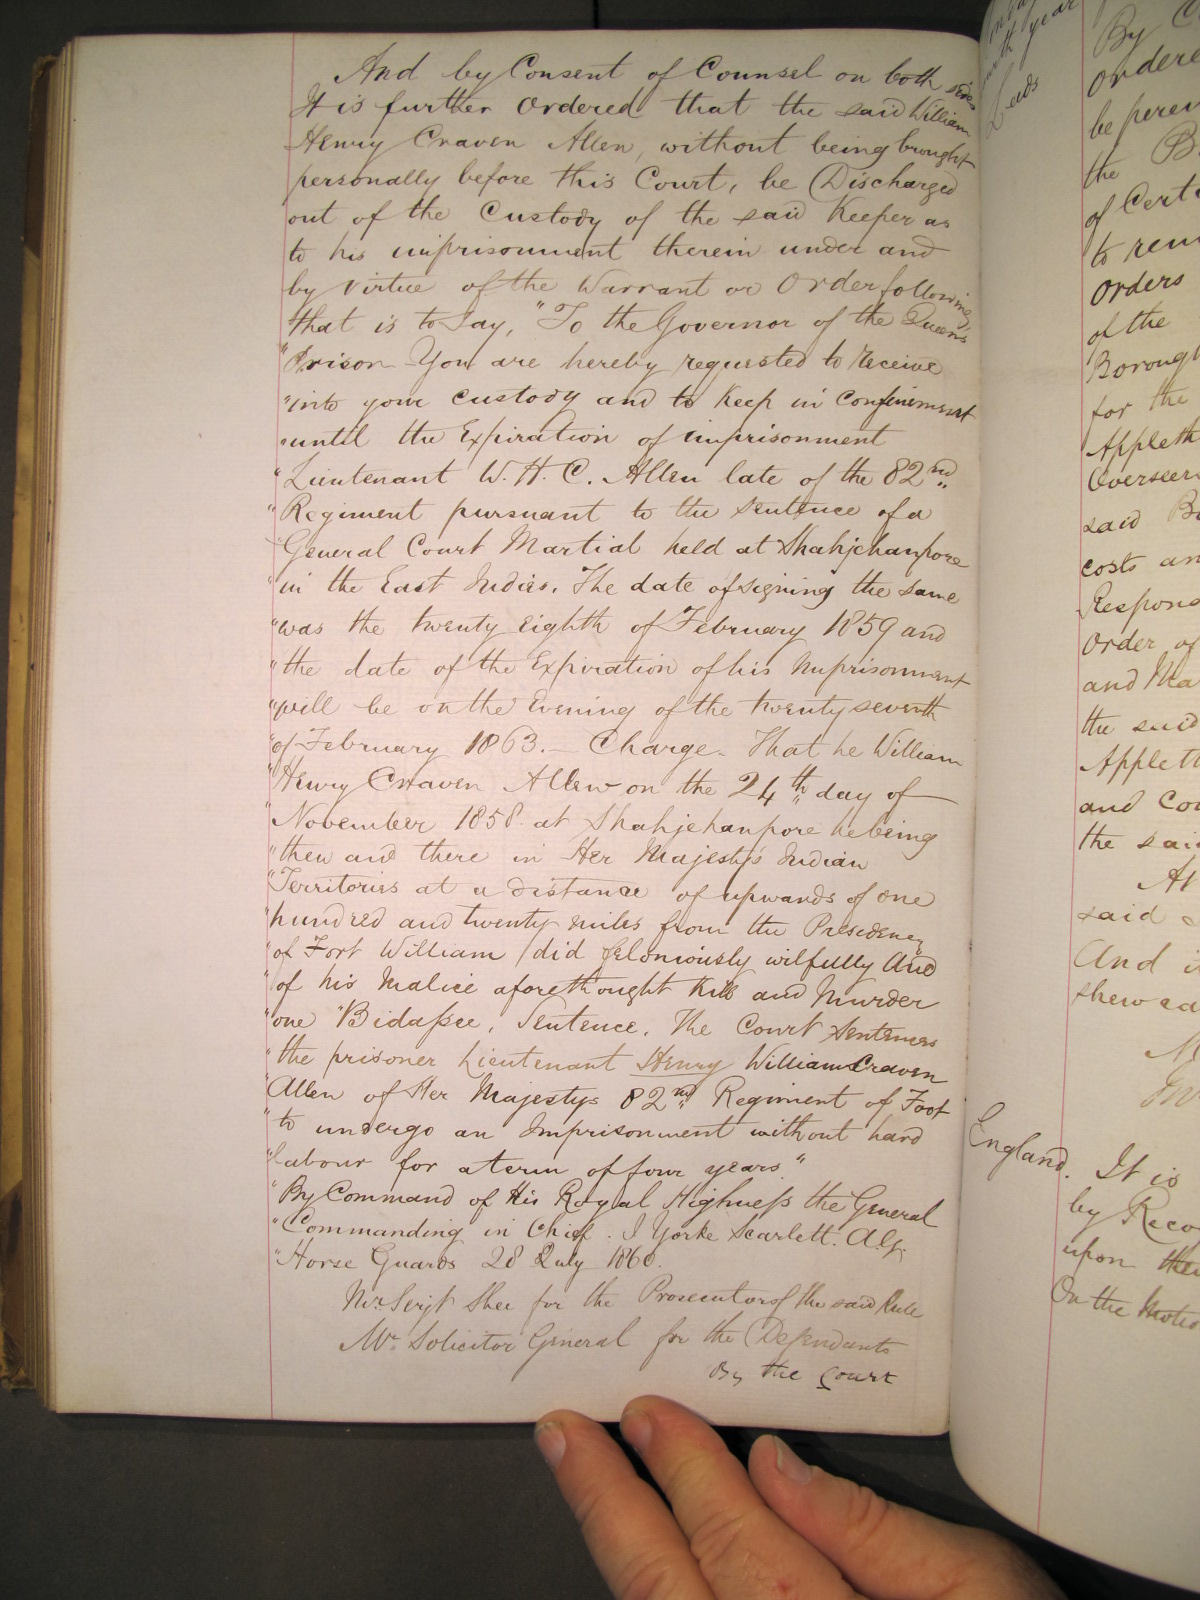 And by Consent of Counsel on both sides
It is further Ordered that the said William
Henry Craven Allen, without being brought
personally before this Court, be Discharged
out of the Custody of the said Keeper as
to his imprisonment therein under and
by virtue of the Warrant or Order following
that is to Say, "To the Governor of the Queens
"Prison You are hereby requested to receive
"into your custody and to keep in Confinement
"until the Expiration of imprisonment
"Lieutenant W. H. C. Allen late of the 82nd
"Regiment pursuant to the Sentence of a
"General Court Martial held at Shahjehanpore
"in the East Indies. The date of signing the same
"was the twenty eighth of February 1859 and
"the date of the Expiration of his Imprisonment
"will be on the Evening of the twenty seventh
"of February 1863. — Charge. That he William
"Henry Craven Allen on the 24th day of
"November 1858 at Shahjehanpore he being
"then and there in Her Majesty's Indian
"Territories at a distance of upwards of one
"hundred and twenty miles from the Presidency
"of Fort William did feloniously wilfully and
"of his Malice aforethought Kill and Murder
"one Bidassee. Sentence. The Court Sentences
"the prisoner Lieutenant Henry William Craven
"Allen of Her Majestys 82nd Regiment of Foot
"to undergo an Imprisonment without hard
"labour for a term of four years"
"By Command of His Royal Highness the General
"Commanding in Chief. J Yorke Scarlett. A.G.
"Horse Guards 28 July 1860.
Mr. Serjt Shee for the Prosecutors of the said Rule
Mr. Solicitor General for the Defendants
By the Court
year
Leeds
England.
By
Ordere
be perem
the B
of Certi
to rem
Orders
of the
Borough
for the
Appleth
Overseer
said Bo
costs an
Respond
Order of
and Ma
the said
Appleth
and Cou
the said
At
said
And i
shewed
It is
by Reco
upon the
On the Motio